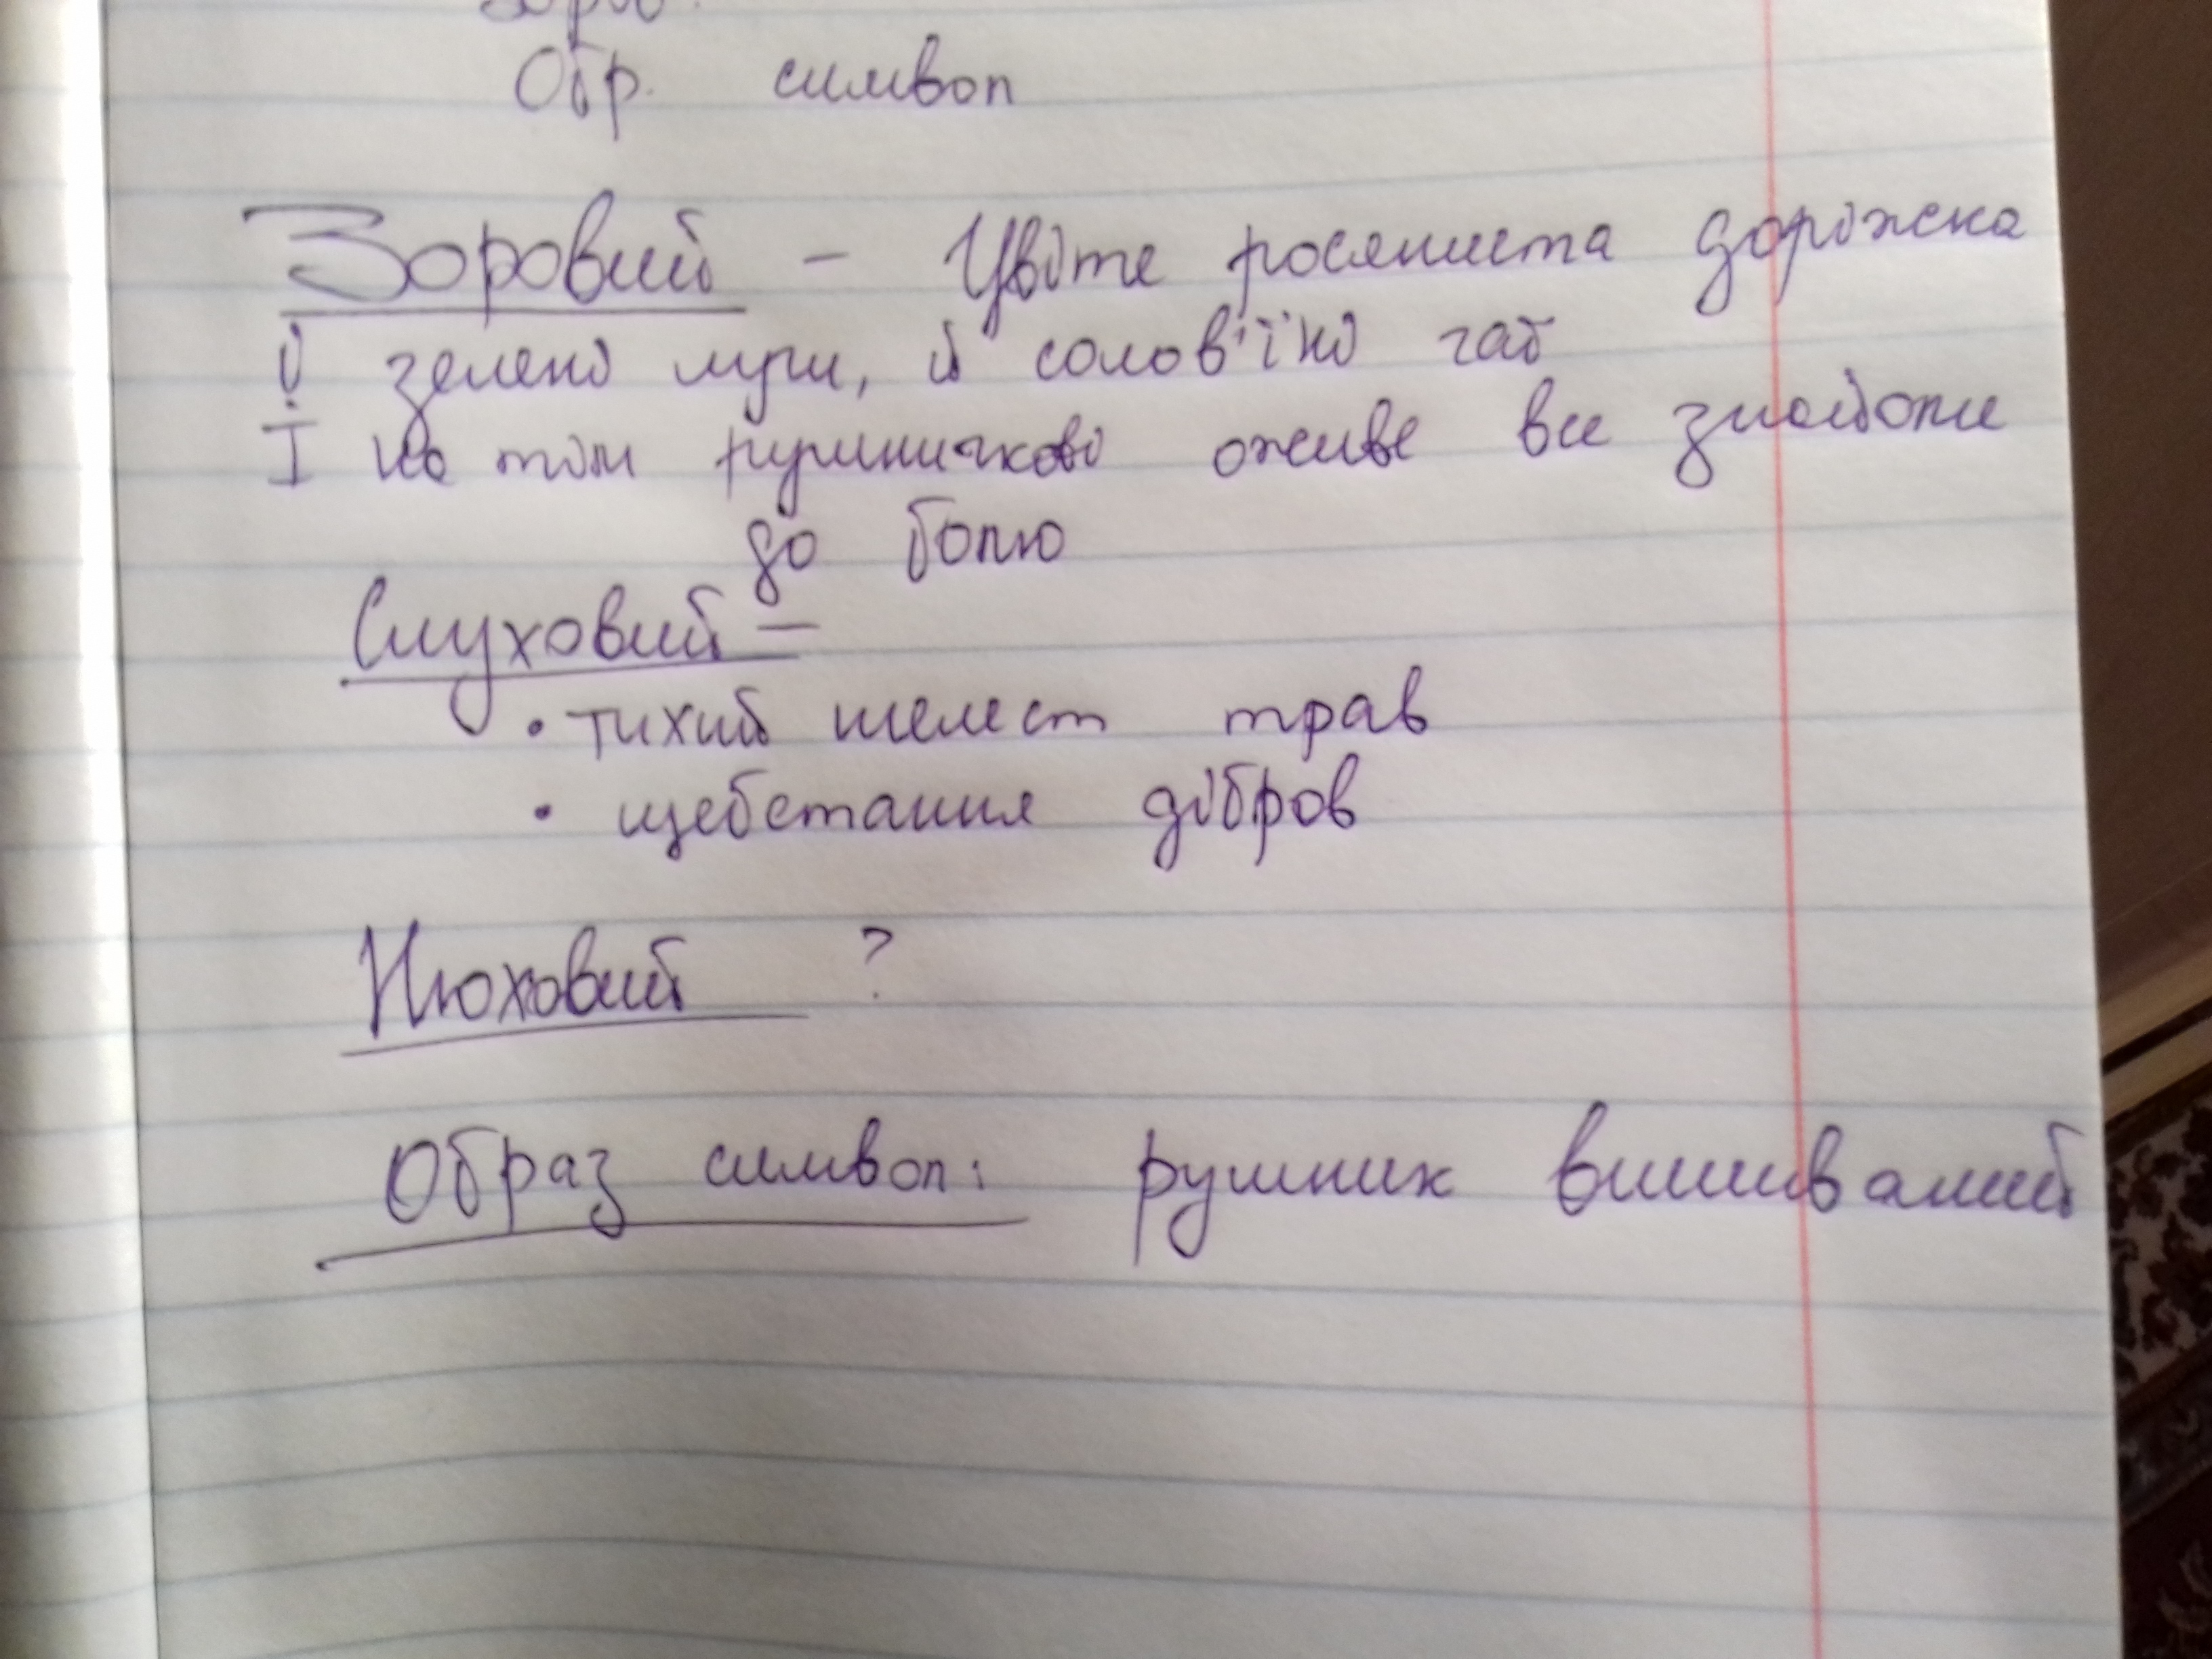 Обр. символ
Зоровий – Цвіте росяниста доріжка
й зелені луги, й солов'їні гаї
І на тім рушничкові оживе все знайоме
до болю
Слуховий –
• тихий шелест трав
• щебетання дібров
Нюховий ?
Образ символ: рушник вишиваний